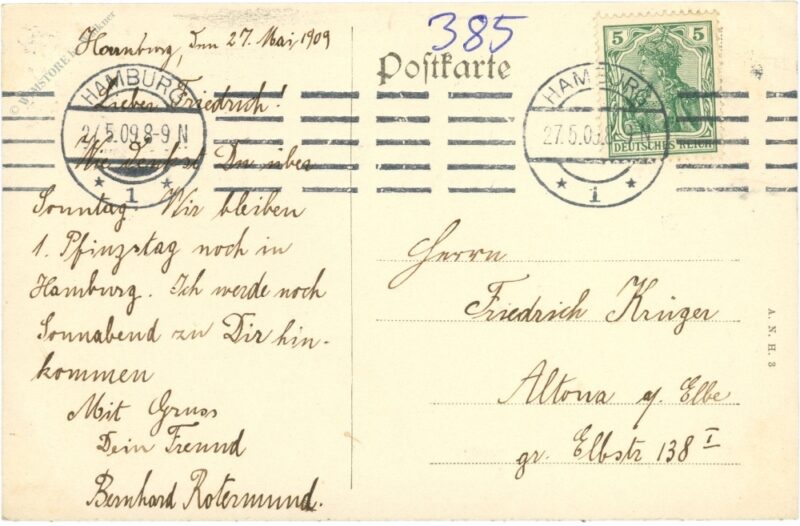 Hamburg, den 27. Mai 1909
Lieber Friedrich!
Wie denkst Du über
Sonntag. Wir bleiben
1. Pfinzstag noch in
Hamburg. Ich werde noch
Sonnabend zu Dir hin-
kommen
Mit Gruss
Dein Freund
Bernhard Rotermund.
385
Postkarte
5 5
DEUTSCHES REICH
HAMBURG
27.5.09.8-9 N
* 1 *
HAMBURG
27.5.09.8-9 N
* 1 *
Herrn
Friedrich Krüger
Altona a/ Elbe
gr. Elbstr 138 I
A. N. H. 3